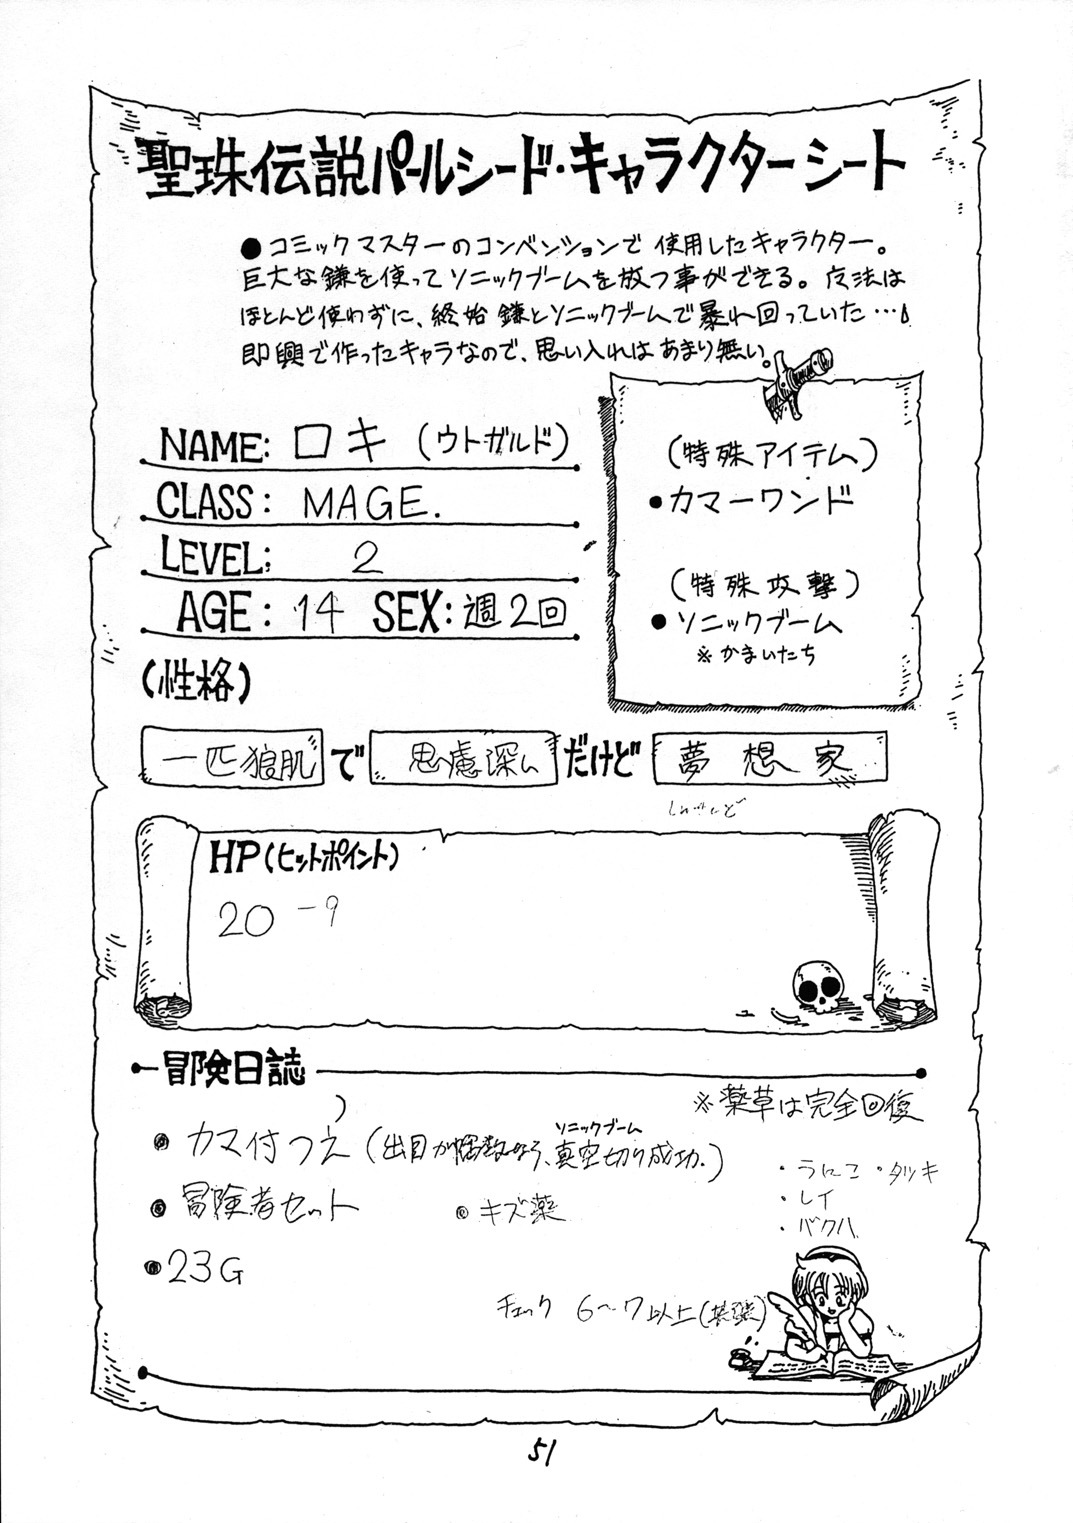 聖珠伝説パールシード・キャラクターシート
●コミックマスターのコンベンションで使用したキャラクター。
巨大な鎌を使ってソニックブームを放つ事ができる。魔法は
ほとんど使わずに、終始鎌とソニックブームで暴れ回っていた…
即興で作ったキャラなので、思い入れはあまり無い。
NAME: ロキ (ウトガルド)
CLASS: MAGE.
LEVEL: 2
AGE: 14 SEX: 週2回
(特殊アイテム)
●カマーワンド
(特殊攻撃)
●ソニックブーム
※かまいたち
(性格)
一匹狼肌で思慮深いだけど夢想家
HP(ヒットポイント)
20 -9
冒険日誌
※薬草は完全回復
ソニックブーム
●カマ付つえ(出目が偶数なら、真空切り成功.)
・うにこ・タツキ
・レイ
・バクハ
●冒険者セット ●キズ薬
●23G
チェック 6〜7以上
51